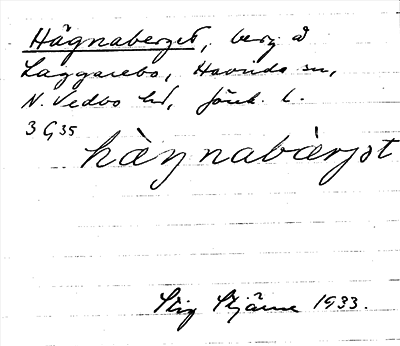 Hägnaberget, berg å
Laggarebo, Haurida sn,
N. Vedbo hd, Jönk. l.
3 G 35
hàŋnabàrjət
Stig Stjärne 1933.